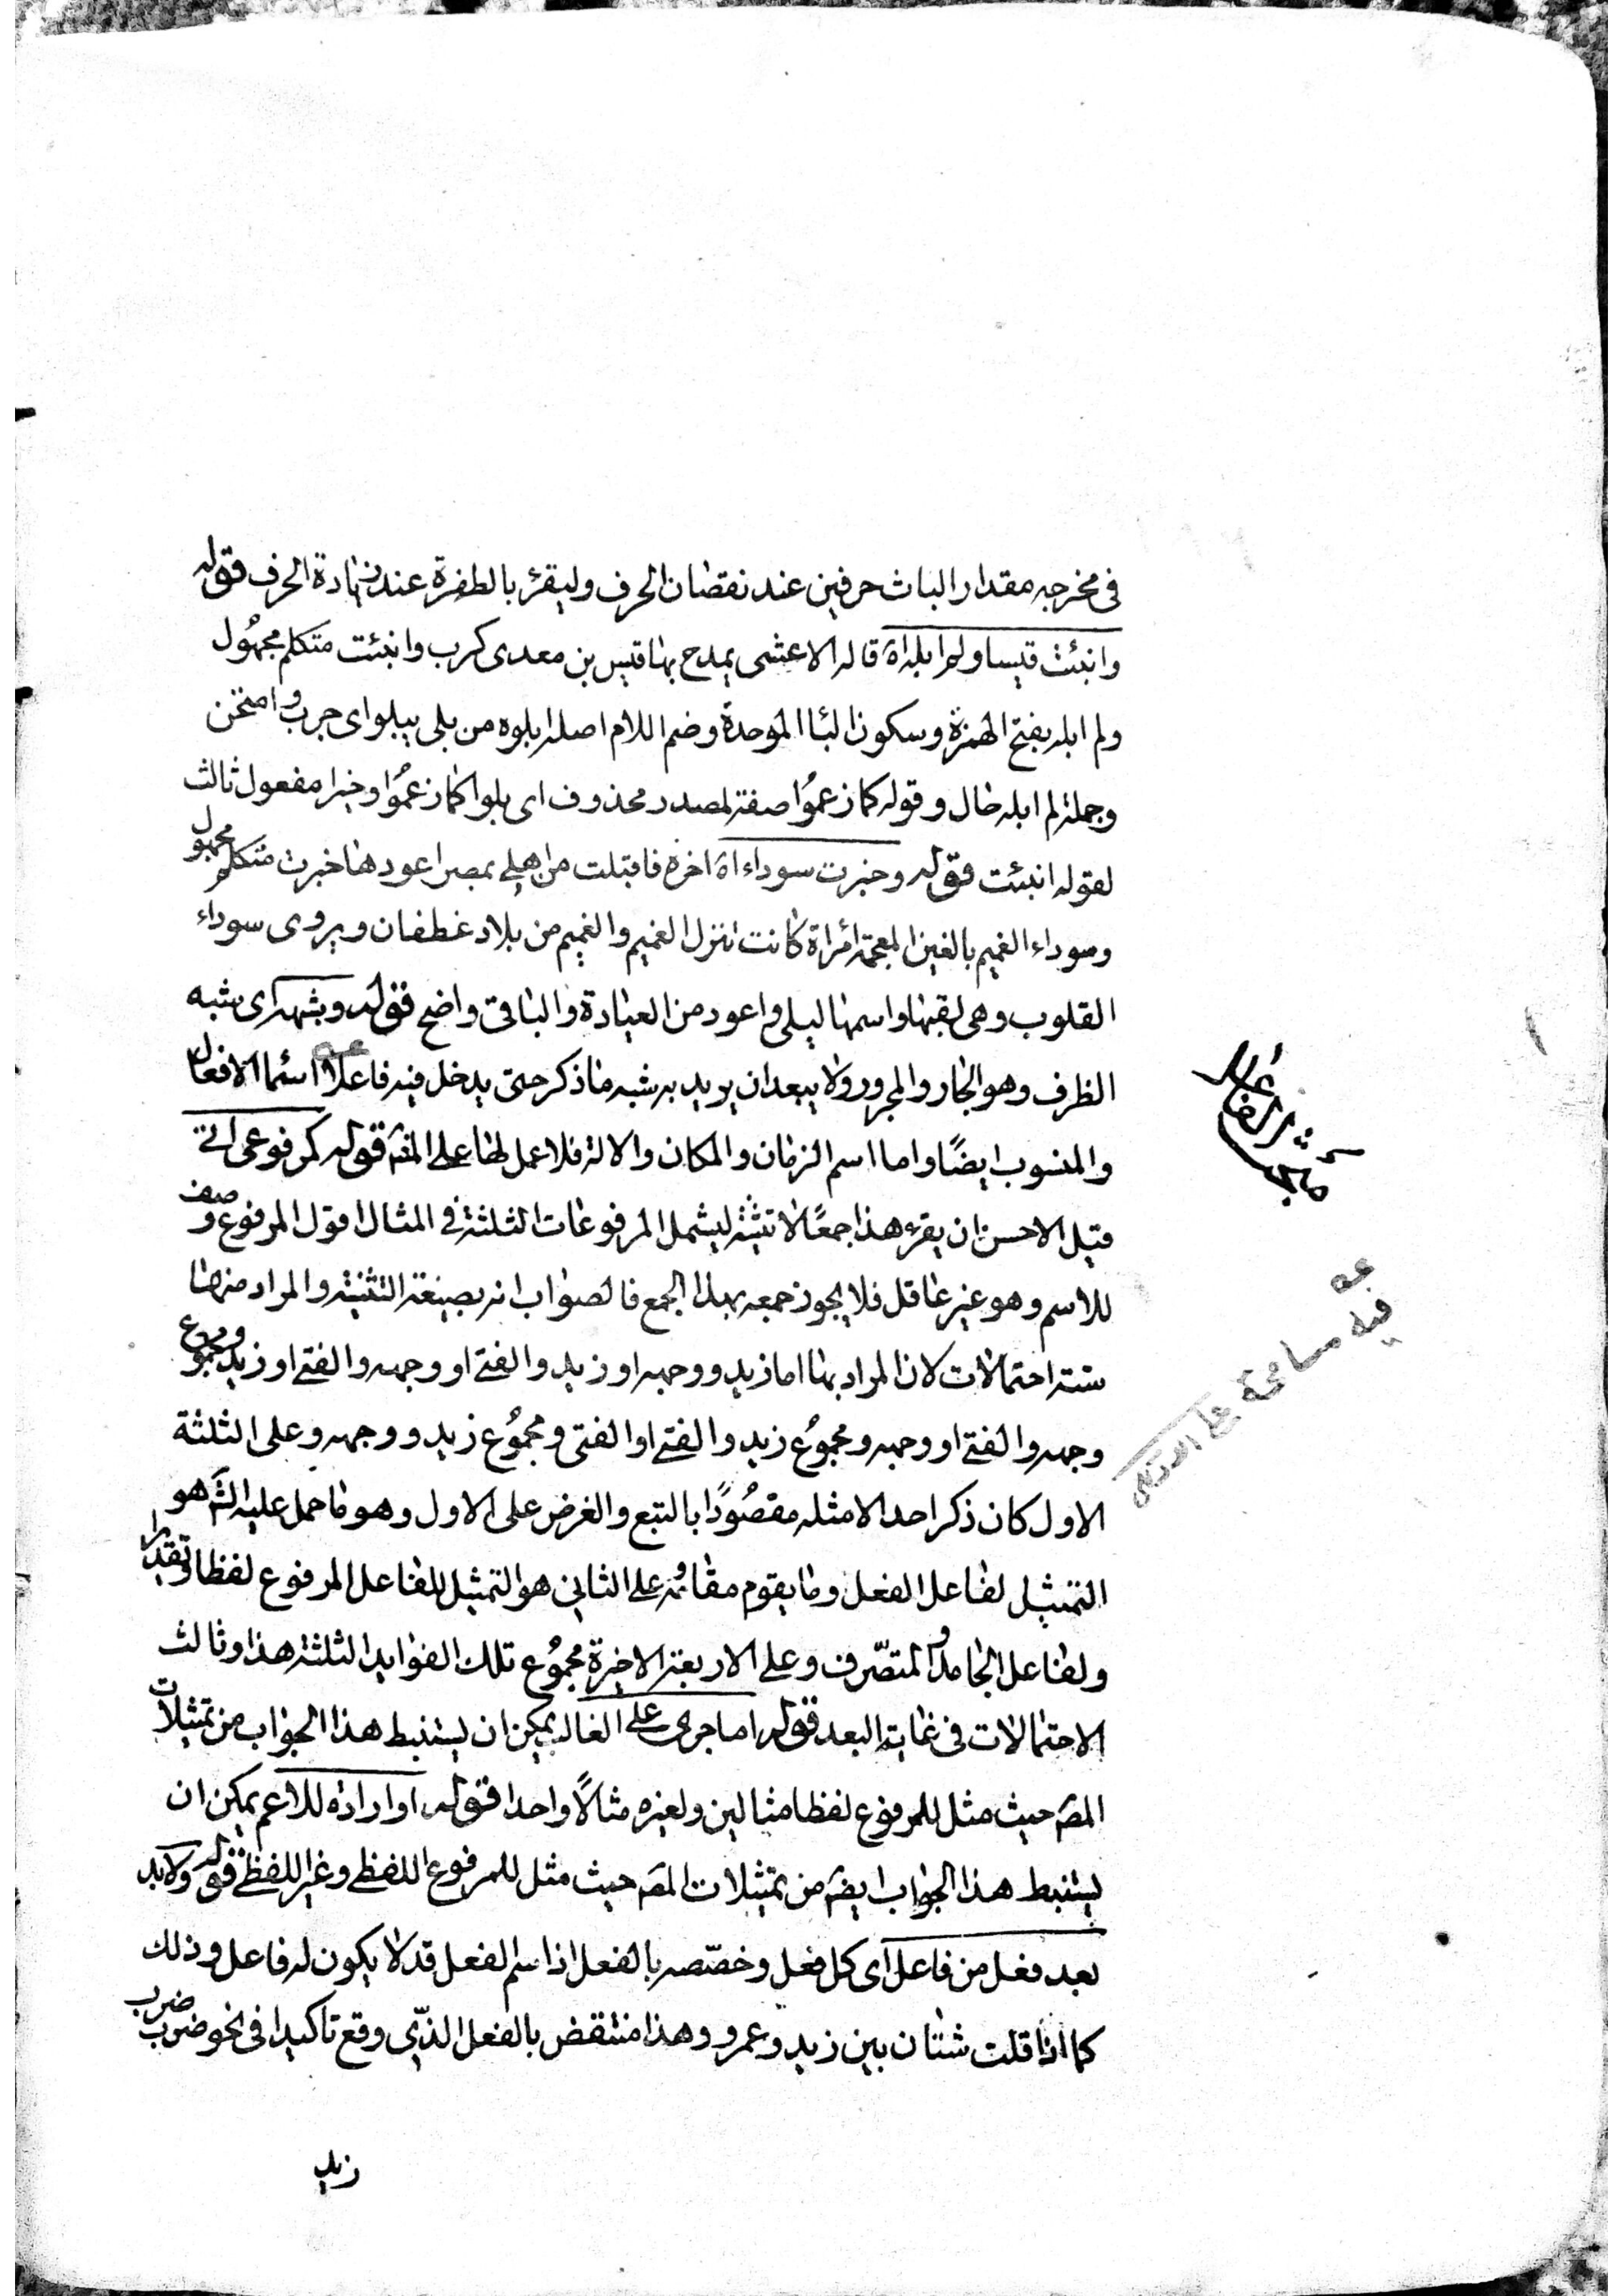 فى مخرجه مقدار الباث حرفين عند نقصان الحرف وليقرء بالطفرة عند زيادة الحرف قوله
وانبئت قيسا ولم ابله اه قاله الاعشى يمدح بها قيس بن معدى كرب وانبئت متكلم مجهول
ولم ابله بفتح الهمزة وسكون البا الموحدة وضم اللام اصله ابلوه من بلى يبلو اى جرب وامتحن
وجملة لم ابله حال وقوله كما زعموا صفة لمصدر محذوف اى بلوا كما زعموا وخبرا مفعول ثالث
لقوله انبئت قوله وخبرت سوداء اه اخره فاقبلت من اهلى بمصر اعودها خبرت متكلم مجهول
وسوداء الغميم بالغين المعجمة امراة كانت تنزل الغميم والغميم من بلاد غطفان ويروى سوداء
القلوب وهى لقبها واسمها ليلى واعود من العيادة والباقى واضح قوله وشبهه اى شبه
الظرف وهو الجار والمجرور ولا يبعد ان يريد به شبه ما ذكر حتى يدخل فيه فاعلا اسما الافعال
والمنسوب ايضًا واما اسم الزمان والمكان والالة فلا عمل لها على المقه قوله كمرفوعى اتى
قيل الاحسن ان يقرء هذا جمعًا لا تثنية ليشمل المرفوعات الثلثة فى المثال اقول المرفوع وصف
للاسم وهو غير عاقل فلا يجوز جمعه بهذا الجمع فالصواب انه بصيغة التثنية والمراد منها
ستة احتمالات لان المراد بها اما زيد ووجهه او زيد والفتى او وجهه والفتى او زيد ومجموع
وجهه والفتى او وجهه ومجموع زيد والفتى او الفتى ومجموع زيد ووجهه وعلى الثلثة
الاول كان ذكر احد الامثله مقصودًا بالتبع والغرض على الاول وهو ما حمل عليه الشه هو
التمثيل لفاعل الفعل وما يقوم مقامه وعلى الثانى هو التمثيل للفاعل المرفوع لفظا وتقديرا
ولفاعل الجامد والمتصّرف وعلى الاربعة الاخيرة مجموع تلك الفوايد الثلثة هذا وثالث
الاحتمالات فى غاية البعد قوله اما جرى على الغالب يمكن ان يستنبط هذا الجواب من تمثيلات
المصه حيث مثل للمرفوع لفظا مثالين ولغيره مثالًا واحدا قوله او ارادة للاعم يمكن ان
يستنبط هذا الجواب ايضه من تمثيلات المصه حيث مثل للمرفوع اللفظى وغير اللفظى قوله ولابد
بعد فعل من فاعل اى كل فعل وخصّصه بالفعل اذ اسم الفعل قد لا يكون له فاعل وذلك
كما اذا قلت شتان بين زيد وعمرو وهذا منتقض بالفعل الذّى وقع تاكيدا فى نحو ضرب ضرب
زيد
مبحث الفاعل
فيه مسامحة على